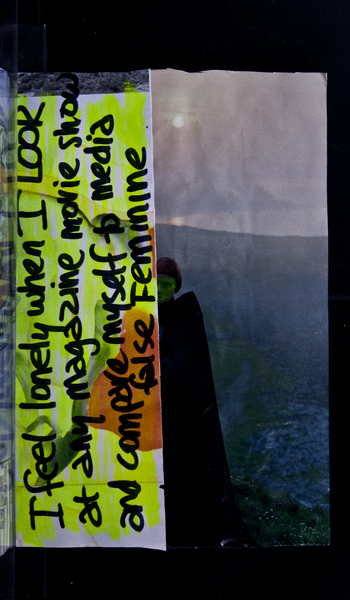 I feel lonely when I LOOK
at any magazine movie show
and compare myself to media
false Feminine